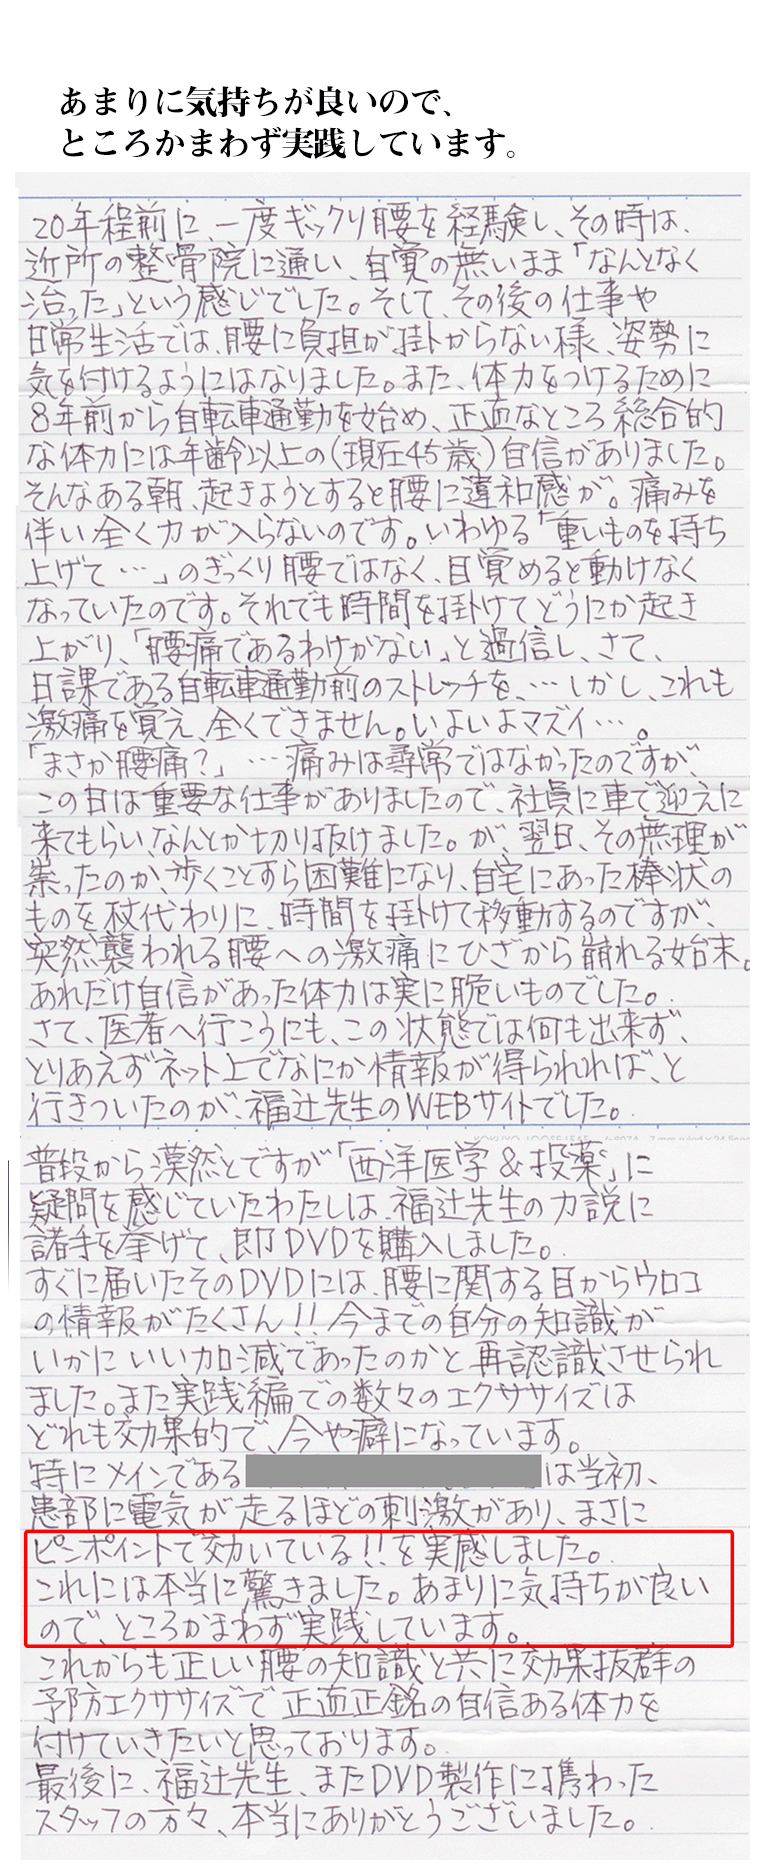 あまりに気持ちが良いので、
ところかまわず実践しています。
20年程前に、一度ギックリ腰を経験し、その時は、
近所の整骨院に通い、自覚の無いまま「なんとなく
治った」という感じでした。そして、その後の仕事や
日常生活では、腰に負担が掛からない様、姿勢に
気を付けるようにはなりました。また、体力をつけるために
8年前から自転車通勤を始め、正直なところ総合的
な体力には年齢以上の(現在45歳)自信がありました。
そんなある朝、起きようとすると腰に違和感が。痛みを
伴い全く力が入らないのです。いわゆる「重いものを持ち
上げて…」のぎっくり腰ではなく、目覚めると動けなく
なっていたのです。それでも時間を掛けてどうにか起き
上がり、「腰痛であるわけがない」と過信し、さて、
日課である自転車通勤前のストレッチを、…しかし、これも
激痛を覚え、全くできません。いよいよマズイ…。
「まさか腰痛?」…痛みは尋常ではなかったのですが、
この日は重要な仕事がありましたので、社員に車で迎えに
来てもらい、なんとか切り抜けました。が、翌日、その無理が
祟ったのか、歩くことすら困難になり、自宅にあった棒状の
ものを杖代わりに、時間を掛けて移動するのですが、
突然襲われる腰への激痛にひざから崩れる始末。
あれだけ自信があった体力は実に脆いものでした。
さて、医者へ行こうにも、この状態では何も出来ず、
とりあえずネット上でなにか情報が得られれば、と
行きついたのが、福辻先生のWEBサイトでした。
普段から漠然とですが「西洋医学&投薬」に
疑問を感じていたわたしは、福辻先生の力説に
諸手を挙げて、即DVDを購入しました。
すぐに届いたそのDVDには、腰に関する目からウロコ
の情報がたくさん!!今までの自分の知識が
いかにいい加減であったのかと再認識させられ
ました。また実践編での数々のエクササイズは
どれも効果的で、今や癖になっています。
特にメインである は当初、
患部に電気が走るほどの刺激があり、まさに
ピンポイントで効いている!!を実感しました。
これには本当に驚きました。あまりに気持ちが良い
ので、ところかまわず実践しています。
これからも正しい腰の知識と共に効果抜群の
予防エクササイズで正真正銘の自信ある体力を
付けていきたいと思っております。
最後に、福辻先生、またDVD製作に携わった
スタッフの方々、本当にありがとうございました。